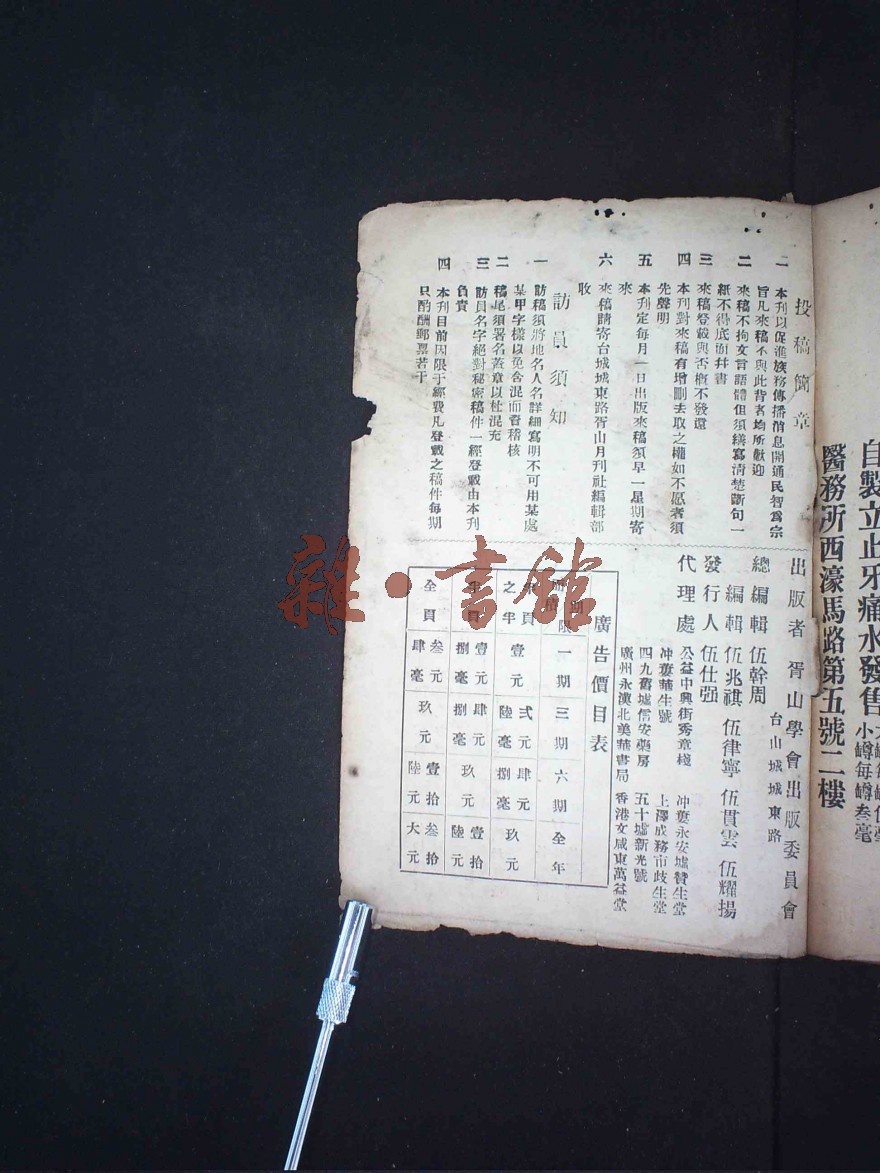 自製立止牙痛水發售
小罇每罇叁毫
醫務所西濠馬路第五號二樓
投稿簡章
一 本刊以促進族務傳播消息開通民智為宗
旨凡來稿不與此背者均所歡迎
二 來稿不拘文言語體但須繕寫清楚斷句一
紙不得底面幷書
三 來稿登載與否概不發還
四 本刊對來稿有增刪去取之權如不愿者須
先聲明
五 本刊定每月一日出版來稿須早一星期寄
來
六 來稿請寄台城城東路胥山月刊社編輯部
收
訪員須知
一 訪稿須將地名人名詳細寫明不可用某處
某甲字樣以免含混而書稽核
二 稿尾須署名蓋章以杜混充
三 訪員名字絕對秘密稿件一經登載由本刊
負責
四 本刊目前因限于經費凡登載之稿件每期
只酌酬郵票若干
出版者 胥山學會出版委員會
台山城城東路
總編輯 伍幹周
編輯 伍兆祺 伍律寧 伍貫雲 伍耀揚
發行人 伍仕强
代理處 公益中興街秀章棧 冲蔞永安墟贊生堂
冲蔞華生號 上澤成務市歧生堂
四九舊墟信安藥房 五十墟新光號
廣州永漢北美華書局 香港文咸東萬益堂
廣告價目表
期限 一期 三期 六期 全年
之半 壹元 弍元陸毫 肆元捌毫 玖元
壹元捌毫 肆元捌毫 玖元 壹拾陸元
全頁 叁元肆毫 玖元 壹拾陸元 叁拾大元
雜·書館